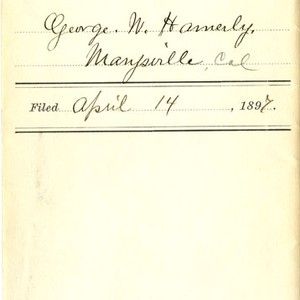 George. W. Hamerly,
Marysville, Cal
Filed April 14, 1897.